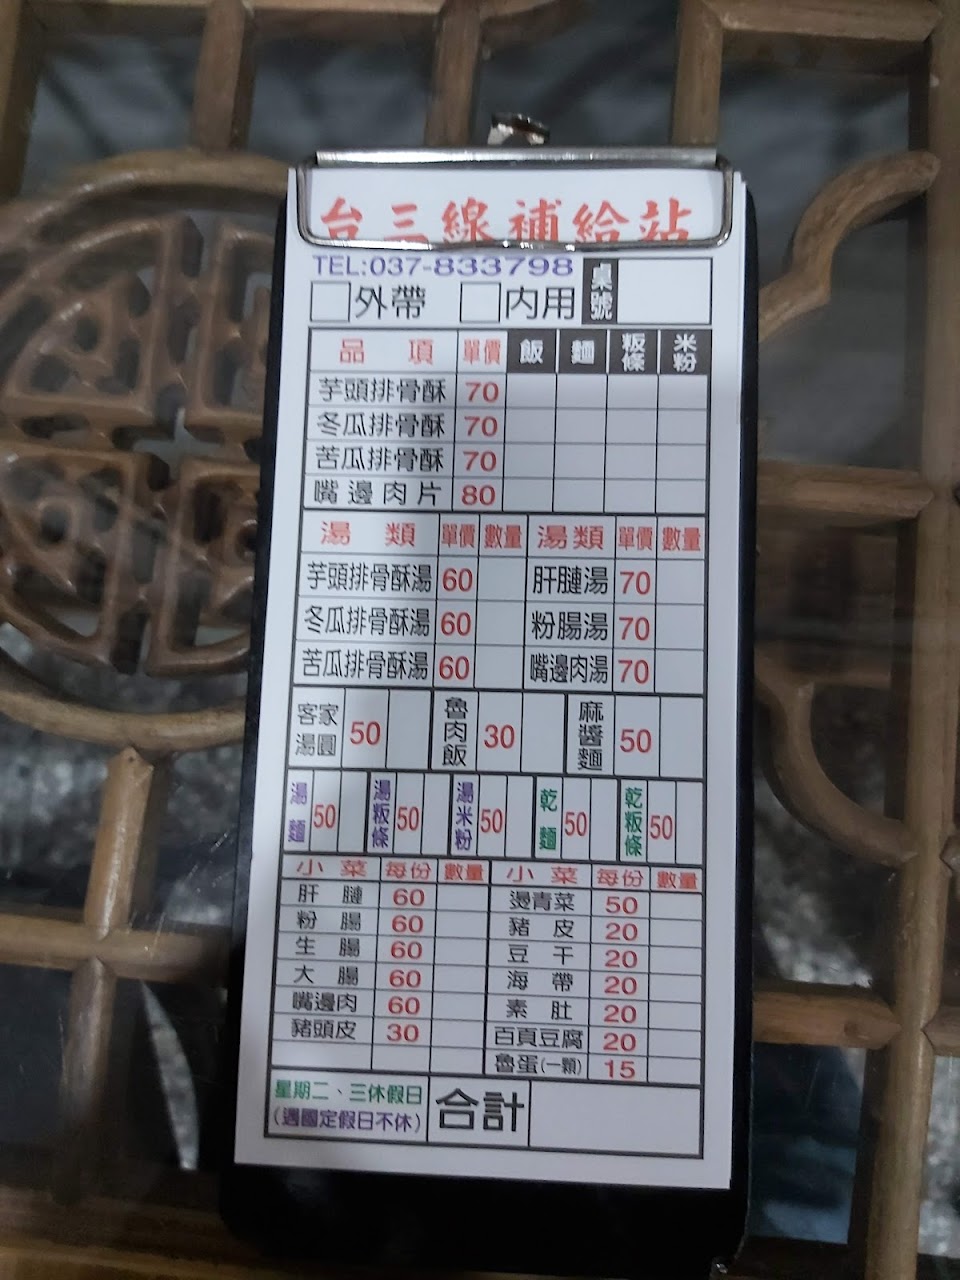 台三線補給站
TEL:037-833798
外帶 內用 桌號
品項 單價 飯 麵 粄條 米粉
芋頭排骨酥 70
冬瓜排骨酥 70
苦瓜排骨酥 70
嘴邊肉片 80
湯類 單價 數量 湯類 單價 數量
芋頭排骨酥湯 60 肝膭湯 70
冬瓜排骨酥湯 60 粉腸湯 70
苦瓜排骨酥湯 60 嘴邊肉湯 70
客家湯圓 50 魯肉飯 30 麻醬麵 50
湯麵 50 湯粄條 50 湯米粉 50 乾麵 50 乾粄條 50
小菜 每份 數量 小菜 每份 數量
肝膭 60 燙青菜 50
粉腸 60 豬皮 20
生腸 60 豆干 20
大腸 60 海帶 20
嘴邊肉 60 素肚 20
豬頭皮 30 百頁豆腐 20
魯蛋(一顆) 15
星期二、三休假日
(遇國定假日不休) 合計